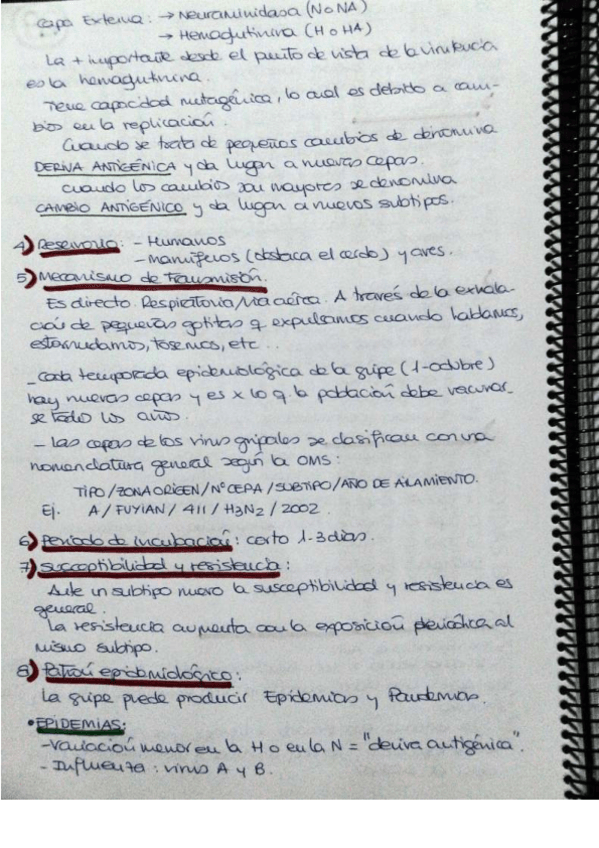 Capa Externa: → Neuraminidasa (N o NA)
→ Hemaglutinina (H o HA)
La + importante desde el punto de vista de la virulencia
es la hemaglutinina.
Tiene capacidad mutagénica, lo cual es debido a cam-
bios en la replicación.
Cuando se trata de pequeños cambios de denomina
DERIVA ANTIGÉNICA y da lugar a nuevas cepas.
Cuando los cambios son mayores se denomina
CAMBIO ANTIGÉNICO y da lugar a nuevos subtipos.
4) Reservorio: - Humanos
- mamíferos (destaca el cerdo) y aves.
5) Mecanismo de Transmisión.
Es directo. Respiratoria/vía aérea. A través de la exhala-
ción de pequeñas gotitas q expulsamos cuando hablamos,
estornudamos, tosemos, etc...
- Cada temporada epidemiológica de la gripe (1-octubre)
hay nuevas cepas y es x lo q. la población debe vacunar-
se todos los años.
- Las cepas de los virus gripales se clasifican con una
nomenclatura general según la OMS:
TIPO / ZONA ORIGEN / Nº CEPA / SUBTIPO / AÑO DE AISLAMIENTO.
Ej. A / FUYIAN / 411 / H3N2 / 2002.
6) Periodo de incubación: corto 1-3 días.
7) Susceptibilidad y resistencia:
Ante un subtipo nuevo la susceptibilidad y resistencia es
general.
La resistencia aumenta con la exposición periódica al
mismo subtipo.
8) Patrón epidemiológico:
La gripe puede producir Epidemias y Pandemias.
• EPIDEMIAS:
- Variación menor en la H o en la N = "deriva antigénica".
- Influenza: virus A y B.